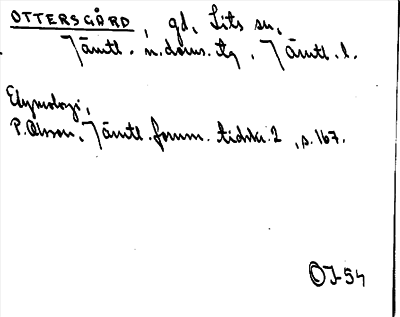 OTTERSGÅRD, gd, Lits sn,
Jämtl. n. doms. tg, Jämtl. l.
Etymologi,
P. Olsson, Jämtl. fornm. tidskr. 2, s. 167.
OJ-54